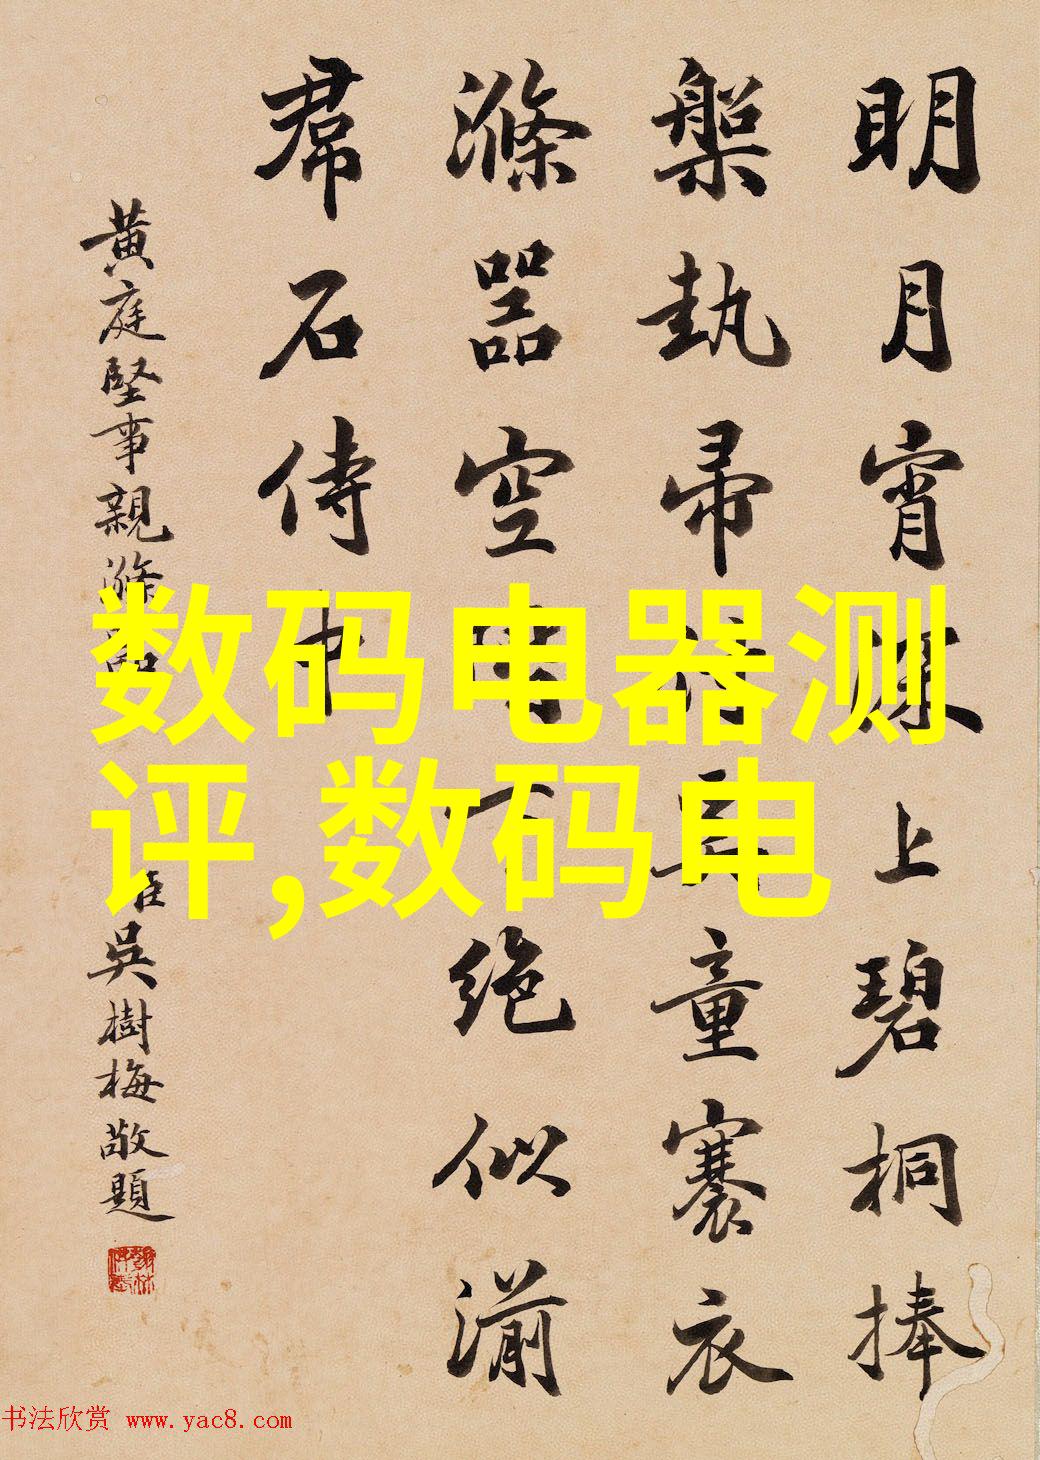 明月宵深上碧桐捧
槃執帚
童褰衣
滌器空
絶似湔
帬石侍中
黄庭堅事親滌器
臣吳樹梅敬題
数码电器测
评,数码电
书法欣赏 www.yac8.com